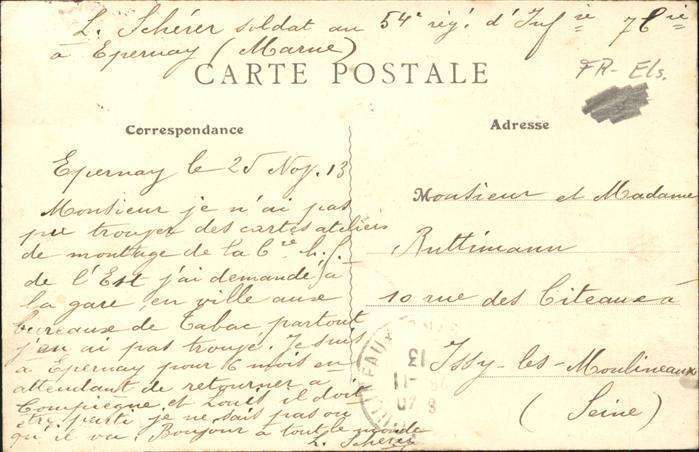 L. Schérer soldat au 54e rég. d'Infrie 7Crie
à Epernay (Marne)
CARTE POSTALE
FR-Els.
Correspondance
Adresse
Epernay le 25 Nov. 13
Monsieur je n'ai pas
pu trouver des cartes ateliers
de montage de la Cie
de l'Est j'ai demandé à
la gare en ville aux
bureaux de Tabac partout
j'en ai pas trouvé. Je suis
à Epernay pour 6 mois en
attendant de retourner à
Compiègne et Louis il doit
être parti je ne sais pas ou
qu'il va. Bonjour à tout le monde
L. Schérer
Monsieur et Madame
Ruttimann
10 rue des Citeaux à
Issy-les-Moulineaux
(Seine)
13
11